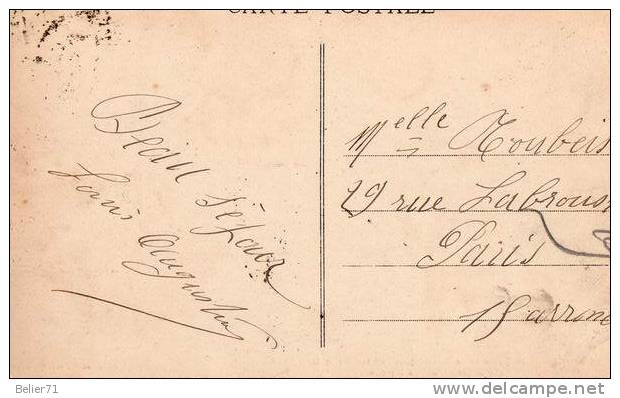 CARTE POSTALE
Beau séjour
Louis Augusta
Melle Noubeis
29 rue Labrous
Paris
15 arrone
Belier71
www.delcampe.net